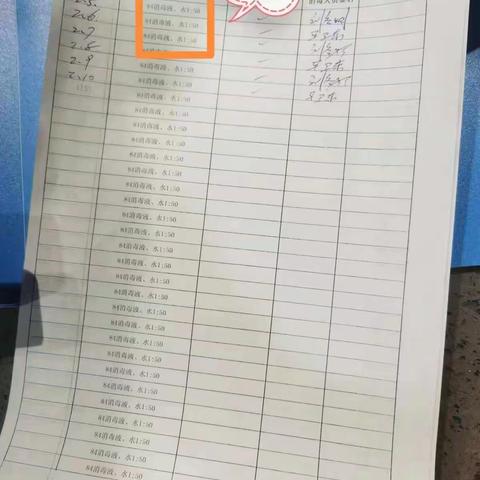 消毒人员签名
2.5. 84消毒液、水1:50
2.6. 84消毒液、水1:50
2.7 84消毒液、水1:50
2.8 84消毒液、水1:50
2.9 84消毒液、水1:50
2.10 84消毒液、水1:50
84消毒液、水1:50
84消毒液、水1:50
84消毒液、水1:50
84消毒液、水1:50
84消毒液、水1:50
84消毒液、水1:50
84消毒液、水1:50
84消毒液、水1:50
84消毒液、水1:50
84消毒液、水1:50
84消毒液、水1:50
84消毒液、水1:50
84消毒液、水1:50
84消毒液、水1:50
84消毒液、水1:50
84消毒液、水1:50
84消毒液、水1:50
84消毒液、水1:50
84消毒液、水1:50
84消毒液、水1:50
84消毒液、水1:50
84消毒液、水1:50
84消毒液、水1:50
84消毒液、水1:50